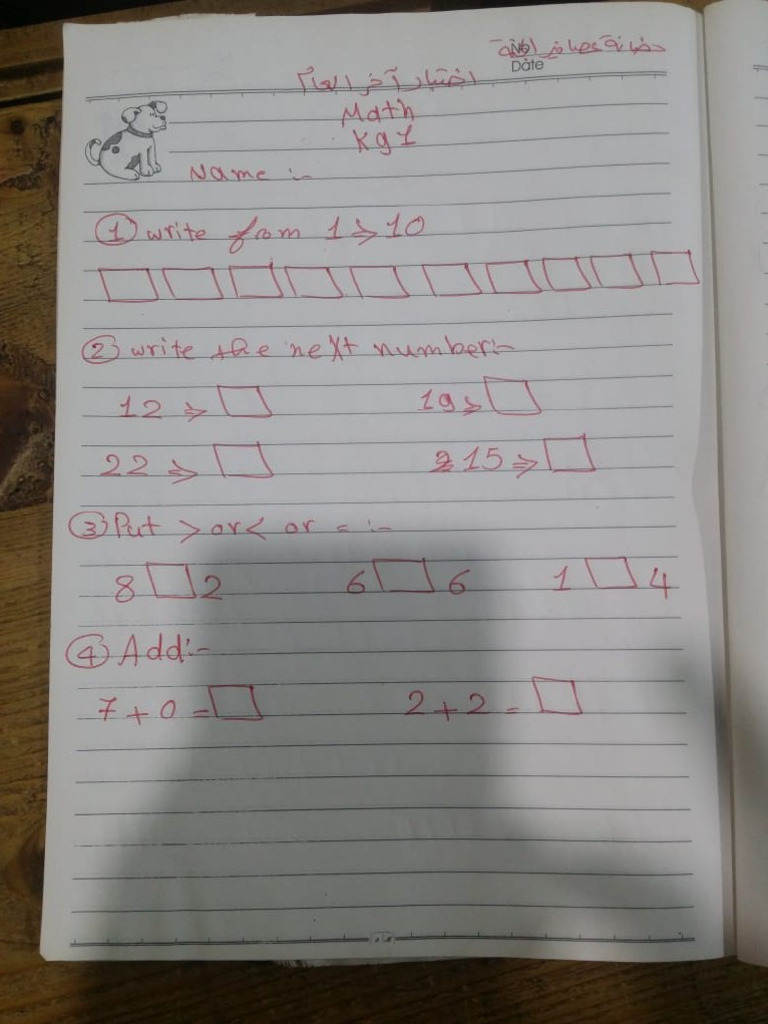 حضانة عصافير الجنة
No
Date
اختبار آخر العام
Math
Kg1
Name :-
① write from 1 > 10
② write the next number:-
12 ⇒ 19 ⇒
22 ⇒ 15 ⇒
③ Put > or < or = :-
8 2 6 6 1 4
④ Add:-
7 + 0 = 2 + 2 =